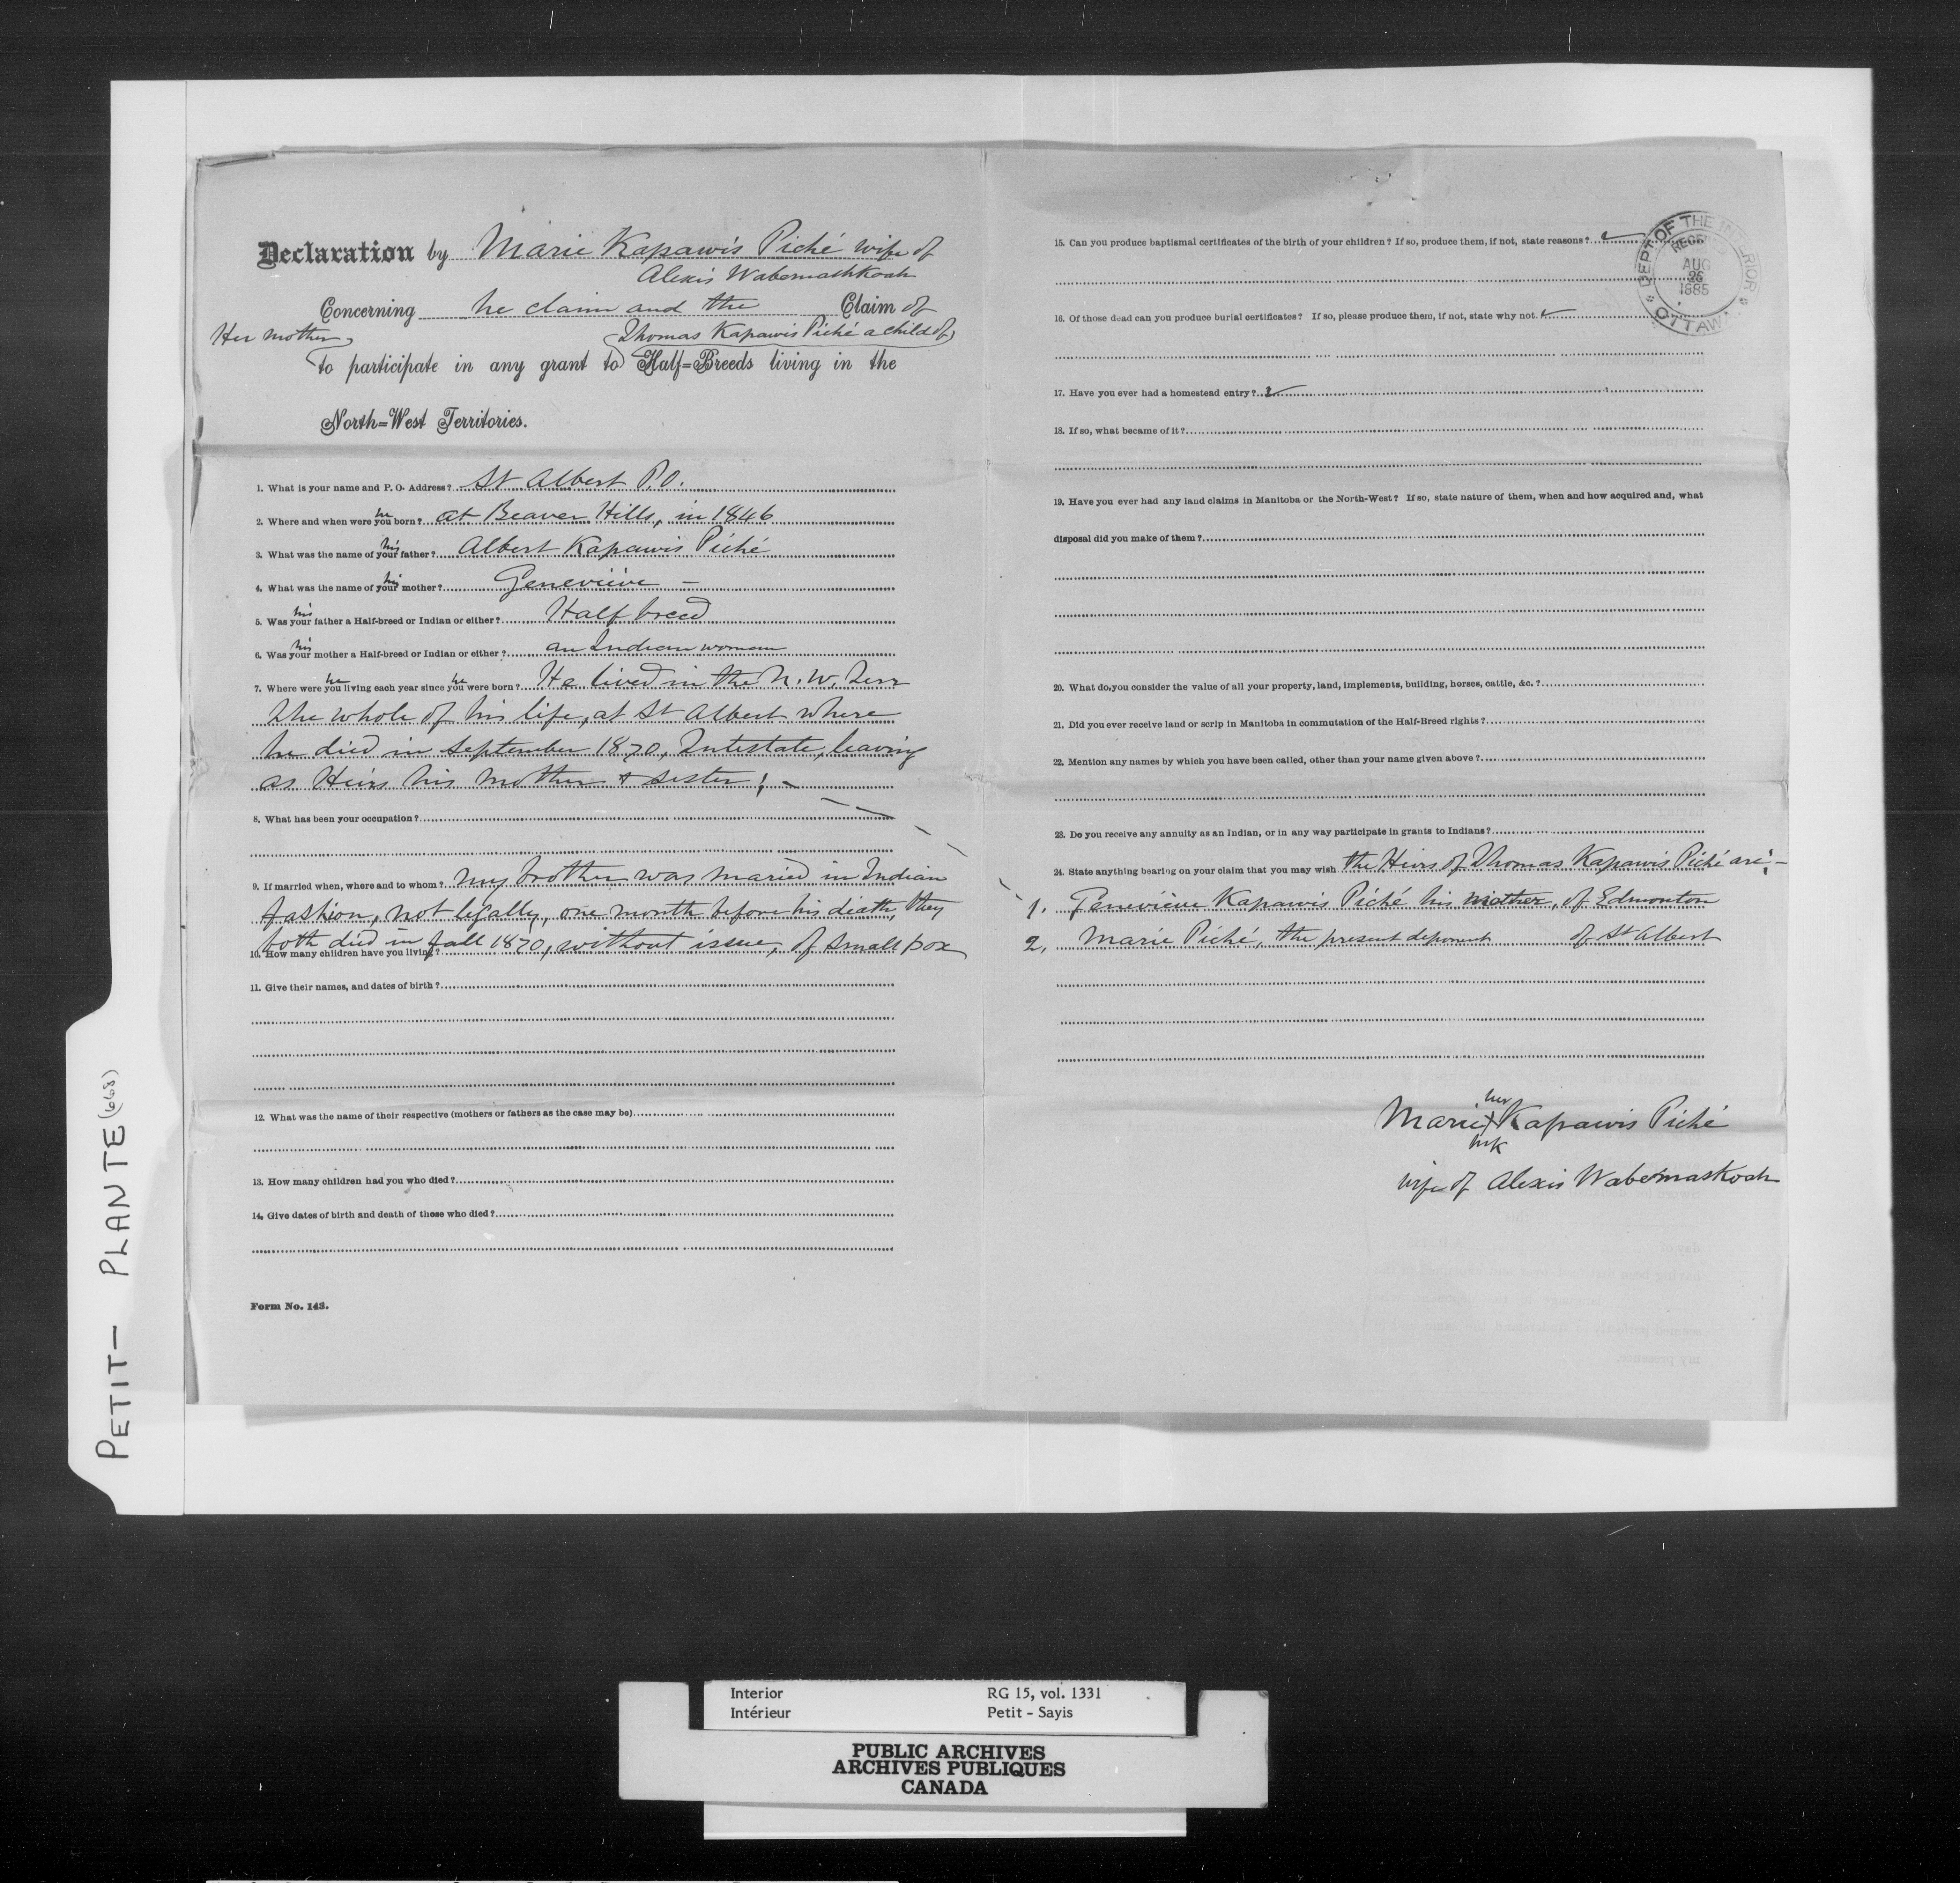 Declaration by Marie Kapawis Piché wife of
Alexis Wabemashkoah
Concerning he claim and the Claim of
Her mother, Thomas Kapawis Piché a child of
to participate in any grant to Half=Breeds living in the
North=West Territories.
1. What is your name and P. O. Address? St Albert P.O.
2. Where and when were you he born? at Beaver Hills, in 1846
3. What was the name of your his father? Albert Kapawis Piché
4. What was the name of your his mother? Geneviève —
5. Was your his father a Half-breed or Indian or either? Half breed
6. Was your his mother a Half-breed or Indian or either? an Indian woman
7. Where were you he living each year since you he were born? He lived in the N. W. Terr
the whole of his life, at St Albert where
he died in September 1870, Intestate, leaving
as Heirs his mother & sister; —
8. What has been your occupation?
9. If married when, where and to whom? my brother was maried in Indian
fashion, not legally, one month before his death, they
both died in fall 1870, without issue, of small pox
10. How many children have you living?
11. Give their names, and dates of birth?
12. What was the name of their respective (mothers or fathers as the case may be)
13. How many children had you who died?
14. Give dates of birth and death of those who died?
Form No. 143.
15. Can you produce baptismal certificates of the birth of your children? If so, produce them, if not, state reasons?
16. Of those dead can you produce burial certificates? If so, please produce them, if not, state why not.
17. Have you ever had a homestead entry?
18. If so, what became of it?
19. Have you ever had any land claims in Manitoba or the North-West? If so, state nature of them, when and how acquired and, what
disposal did you make of them?
20. What do you consider the value of all your property, land, implements, building, horses, cattle, &c.?
21. Did you ever receive land or scrip in Manitoba in commutation of the Half-Breed rights?
22. Mention any names by which you have been called, other than your name given above?
23. Do you receive any annuity as an Indian, or in any way participate in grants to Indians?
24. State anything bearing on your claim that you may wish the Heirs of Thomas Kapawis Piché are; —
1. Geneviève Kapawis Piché his mother, of Edmonton
2. Marie Piché, the present deponent of St Albert
her
Marie X Kapawis Piché
mk
wife of Alexis Wabemaskoah
DEPT OF THE INTERIOR
RECEIVED
AUG
26
1885
OTTAWA
PETIT — PLANTE (668)
Interior RG 15, vol. 1331
Intérieur Petit - Sayis
PUBLIC ARCHIVES
ARCHIVES PUBLIQUES
CANADA